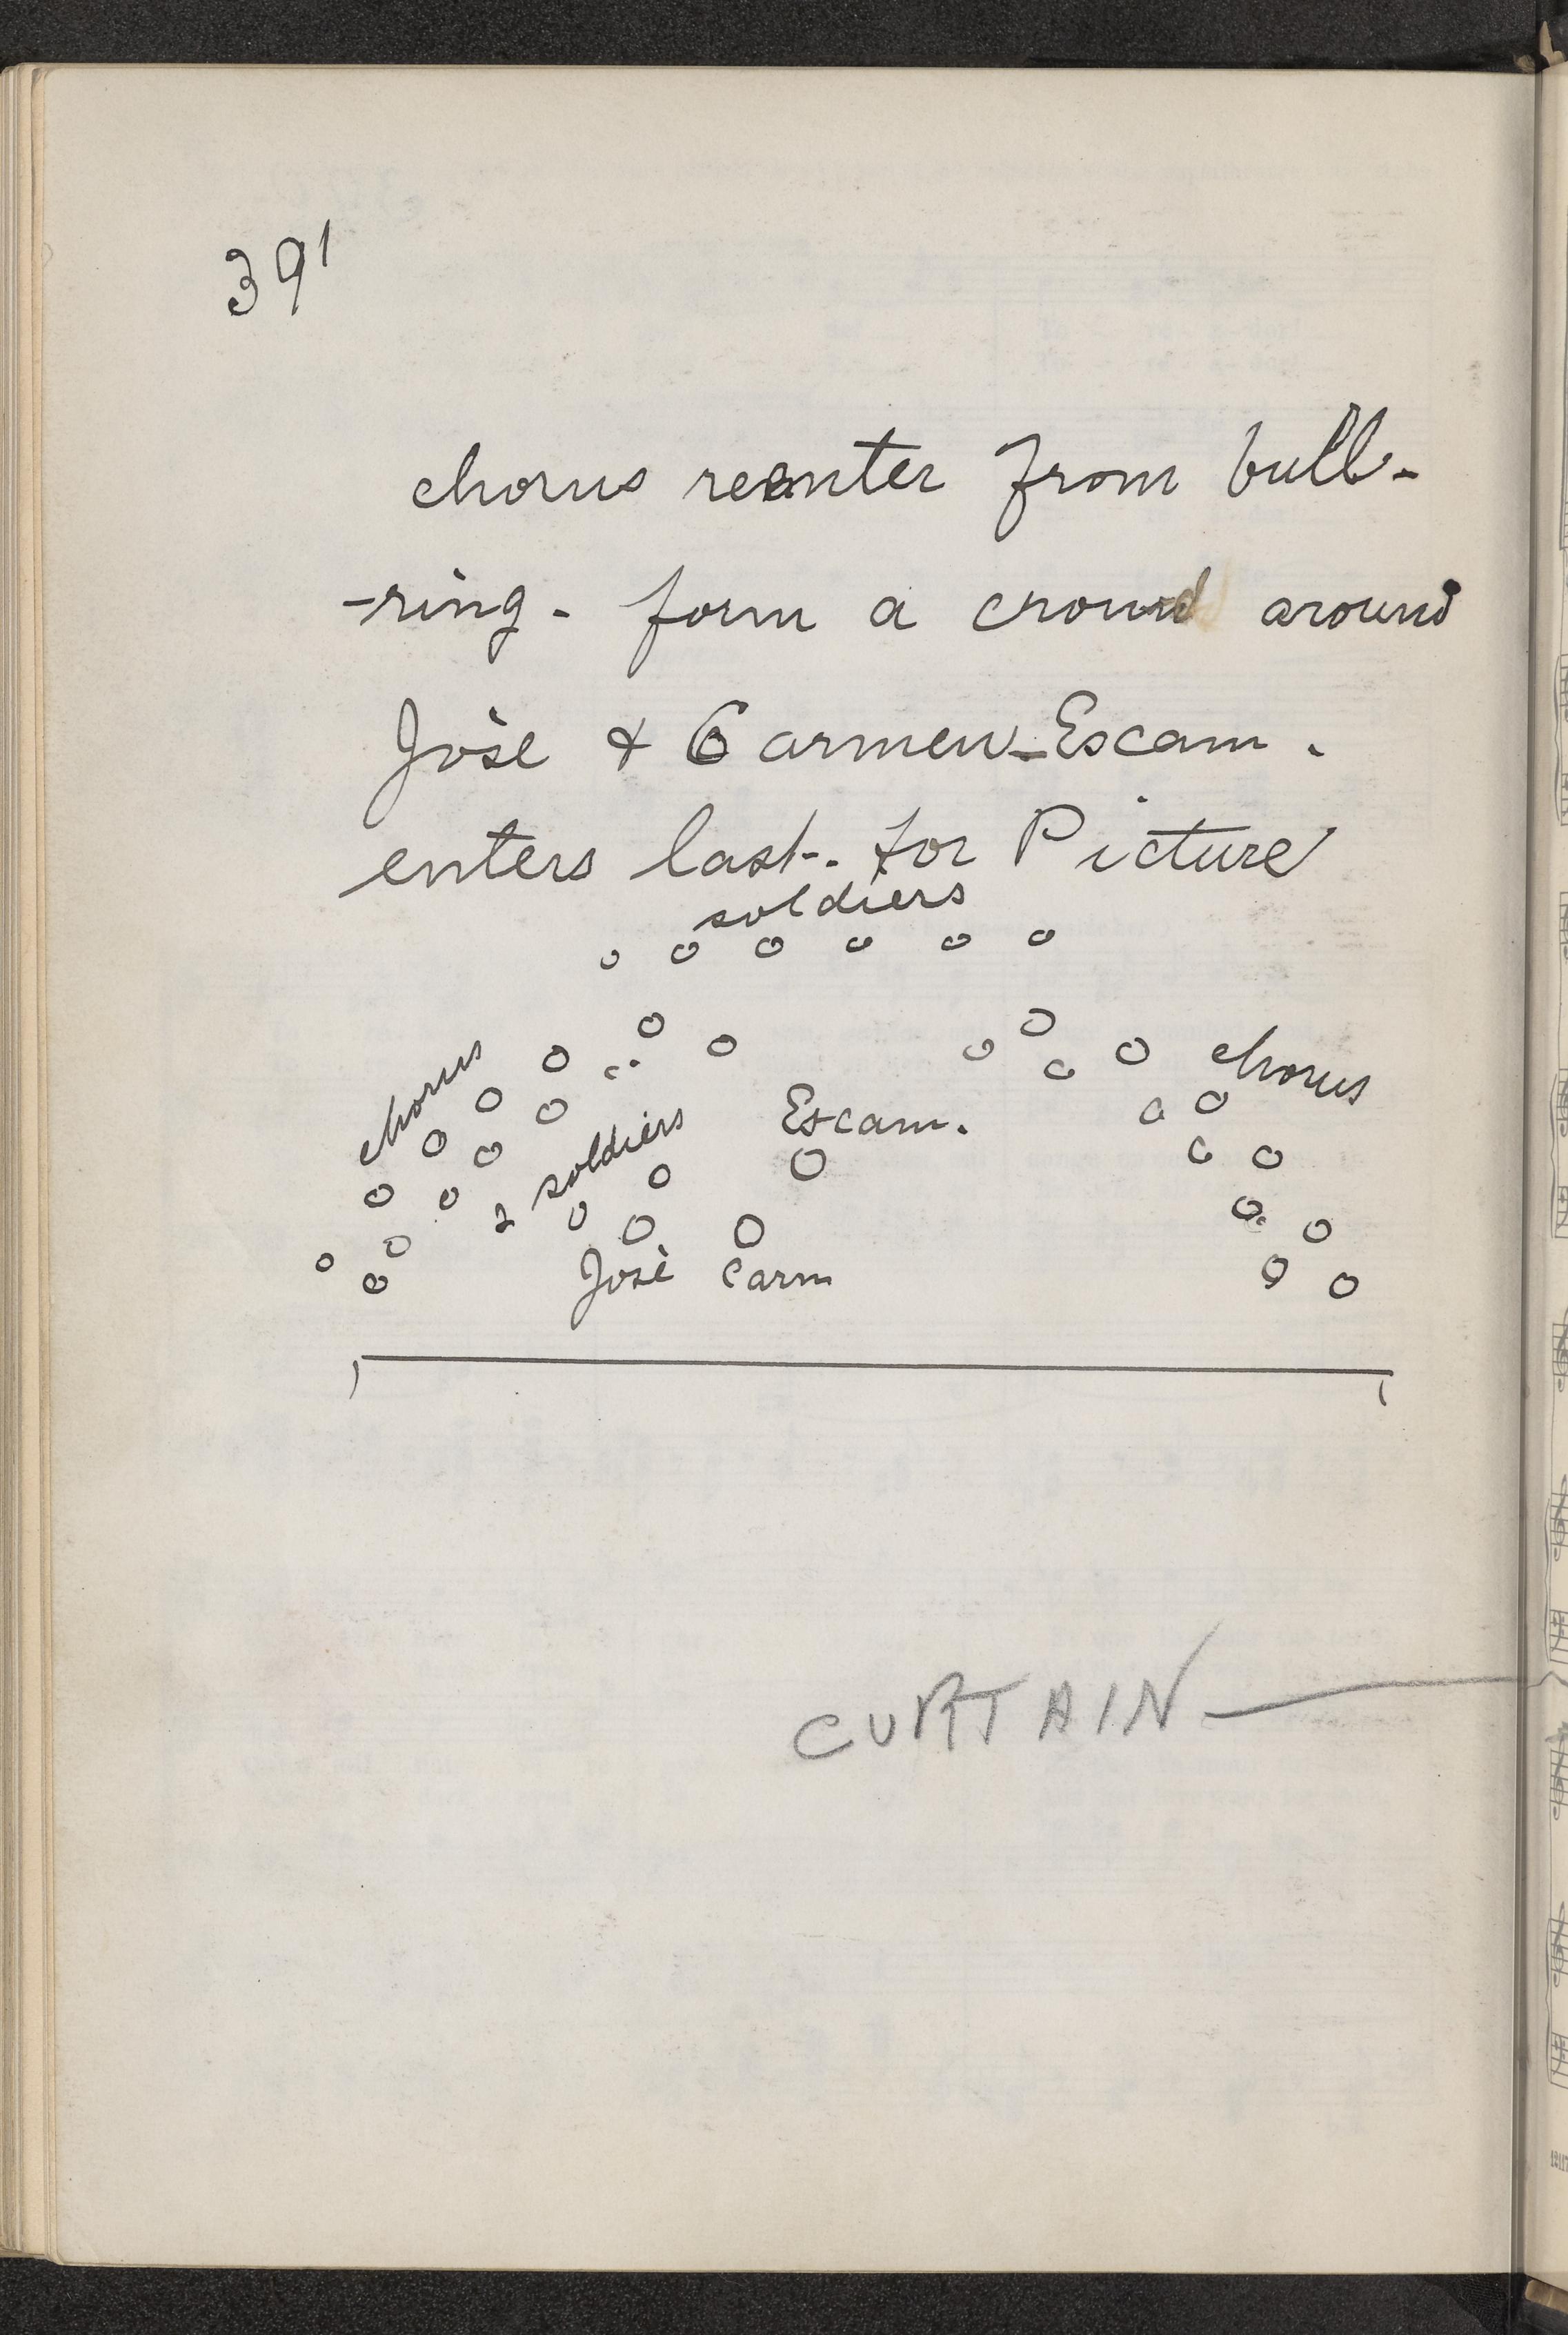 391
chorus reenter from bull-
-ring - form a crowd around
Josè & Carmen - Escam.
enters last -. for Picture
soldiers
chorus
chorus
2 soldiers
Escam.
Josè Carm
CURTAIN